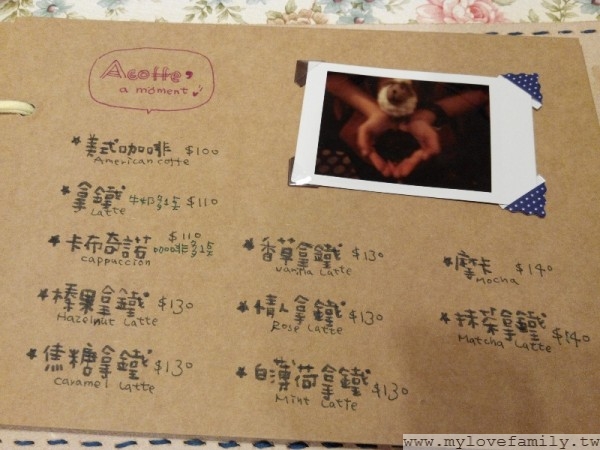 A coffe,
a moment
★美式咖啡 $100
American coffe
★拿鐵 牛奶多1點 $110
Latte
★卡布奇諾 $110 咖啡多1點
cappuccion
★榛果拿鐵 $130
Hazelnut Latte
★焦糖拿鐵 $130
caramel Latte
★香草拿鐵 $130
vanilla Latte
★情人拿鐵 $130
Rose Latte
★白薄荷拿鐵 $130
Mint Latte
★摩卡 $140
Mocha
★抹茶拿鐵 $140
Matcha Latte
www.mylovefamily.tw